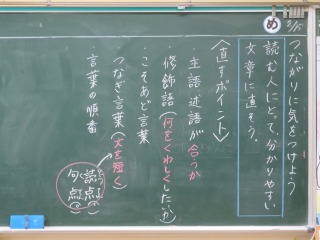 め
つながりに気をつけよう
読む人にとって、分かりやすい
文章に直そう。
〈直すポイント〉
・主語、述語が合うか
・修飾語(何をくわしくしたいか)
・こそあど言葉
・つなぎ言葉(文を短く)
・言葉の順番
読点
句点